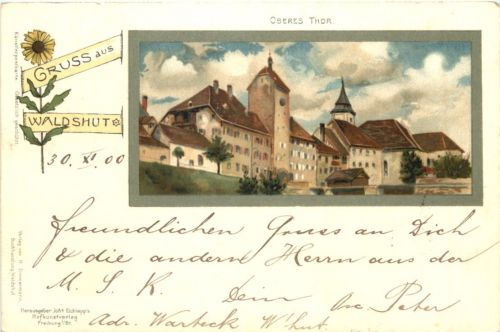 OBERES THOR.
GRUSS AUS
WALDSHUT
30. XI. 00
freundlichen Gruss an Dich
& die andern Herrn aus der
M. S. K. Dein Peter
Adr. Warteck W'hut.
Künstlerpostkarte
Gesetzlich geschützt.
Verlag von H.
Buchhandlung Waldshut
Herausgeber Joh? Elchlepp's
Hofkunstverlag
Freiburg i/Br.